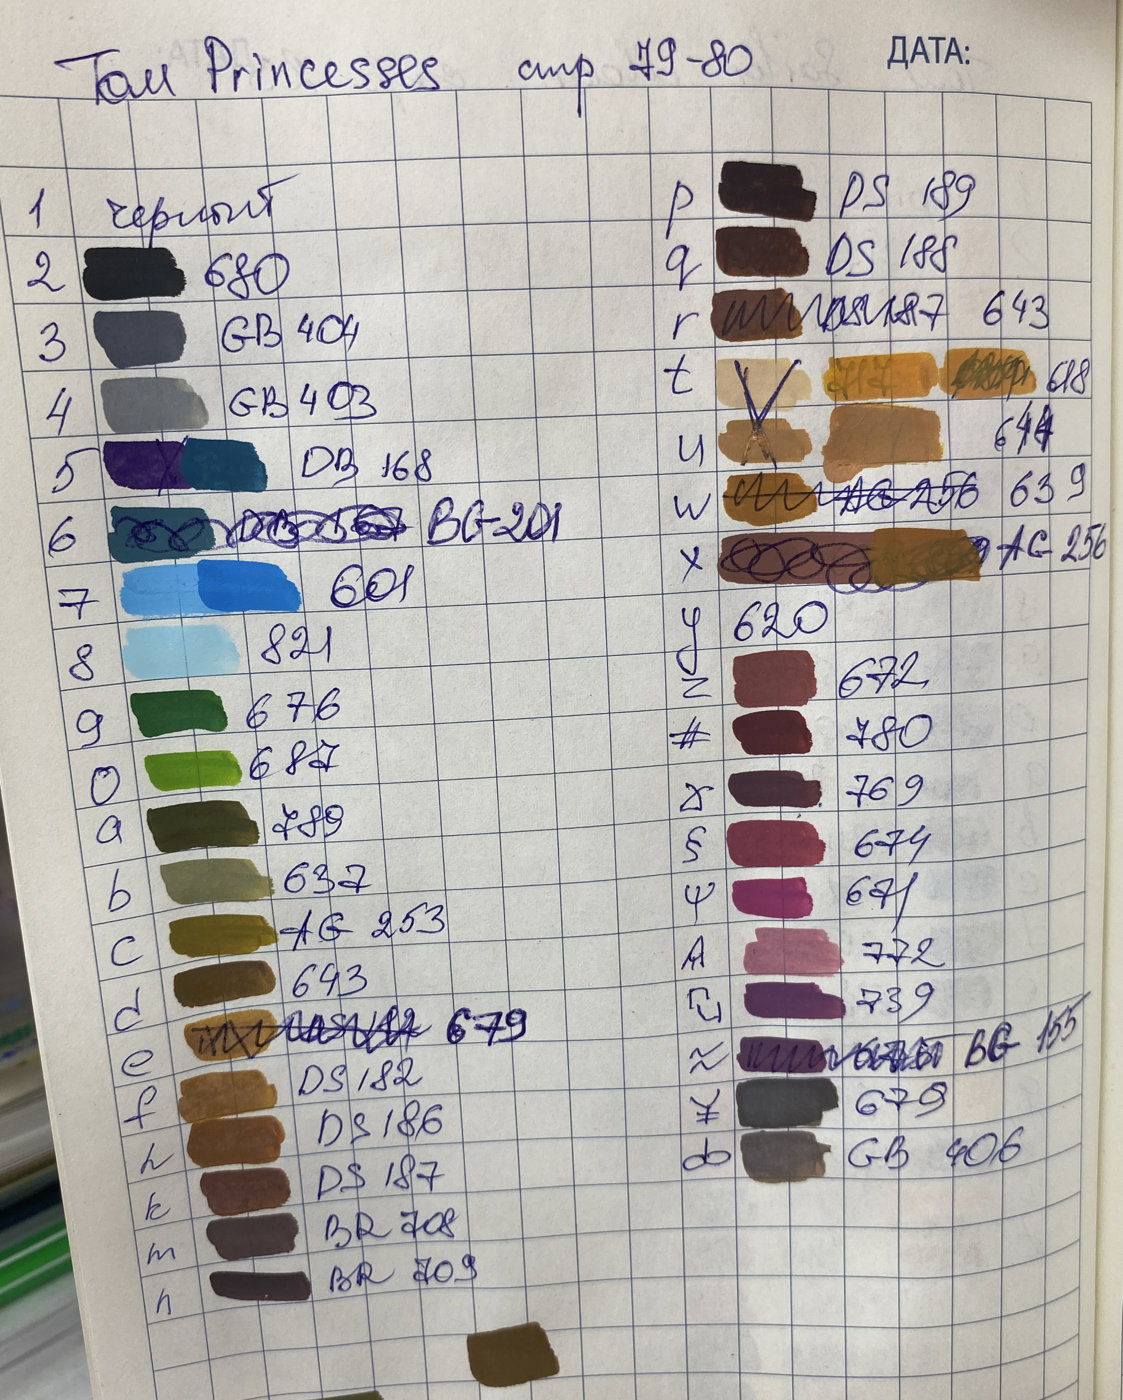 ДАТА:
Том Princesses стр 79-80
1 черный
2 680
3 GB 404
4 GB 403
5 DB 168
6 BG 201
7 601
8 821
9 676
0 687
a 789
b 637
c AG 253
d 643
e 679
f DS 182
h DS 186
k DS 187
m BR 708
n BR 709
p DS 189
q DS 188
r DS 187 643
t 717 618
u 644
w AG 256 639
x AG 256
y 620
z 672
# 780
769
§ 674
Ψ 671
A 772
739
≈ BG 155
¥ 679
GB 406